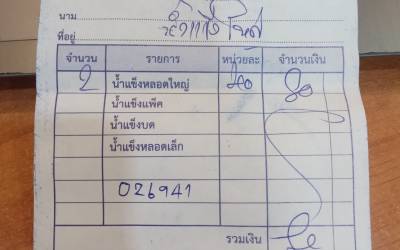 นาม
ที่อยู่
จำนวน รายการ หน่วยละ จำนวนเงิน
2 น้ำแข็งหลอดใหญ่ 40 80
น้ำแข็งแพ็ค
น้ำแข็งบด
น้ำแข็งหลอดเล็ก
026941
รวมเงิน 80